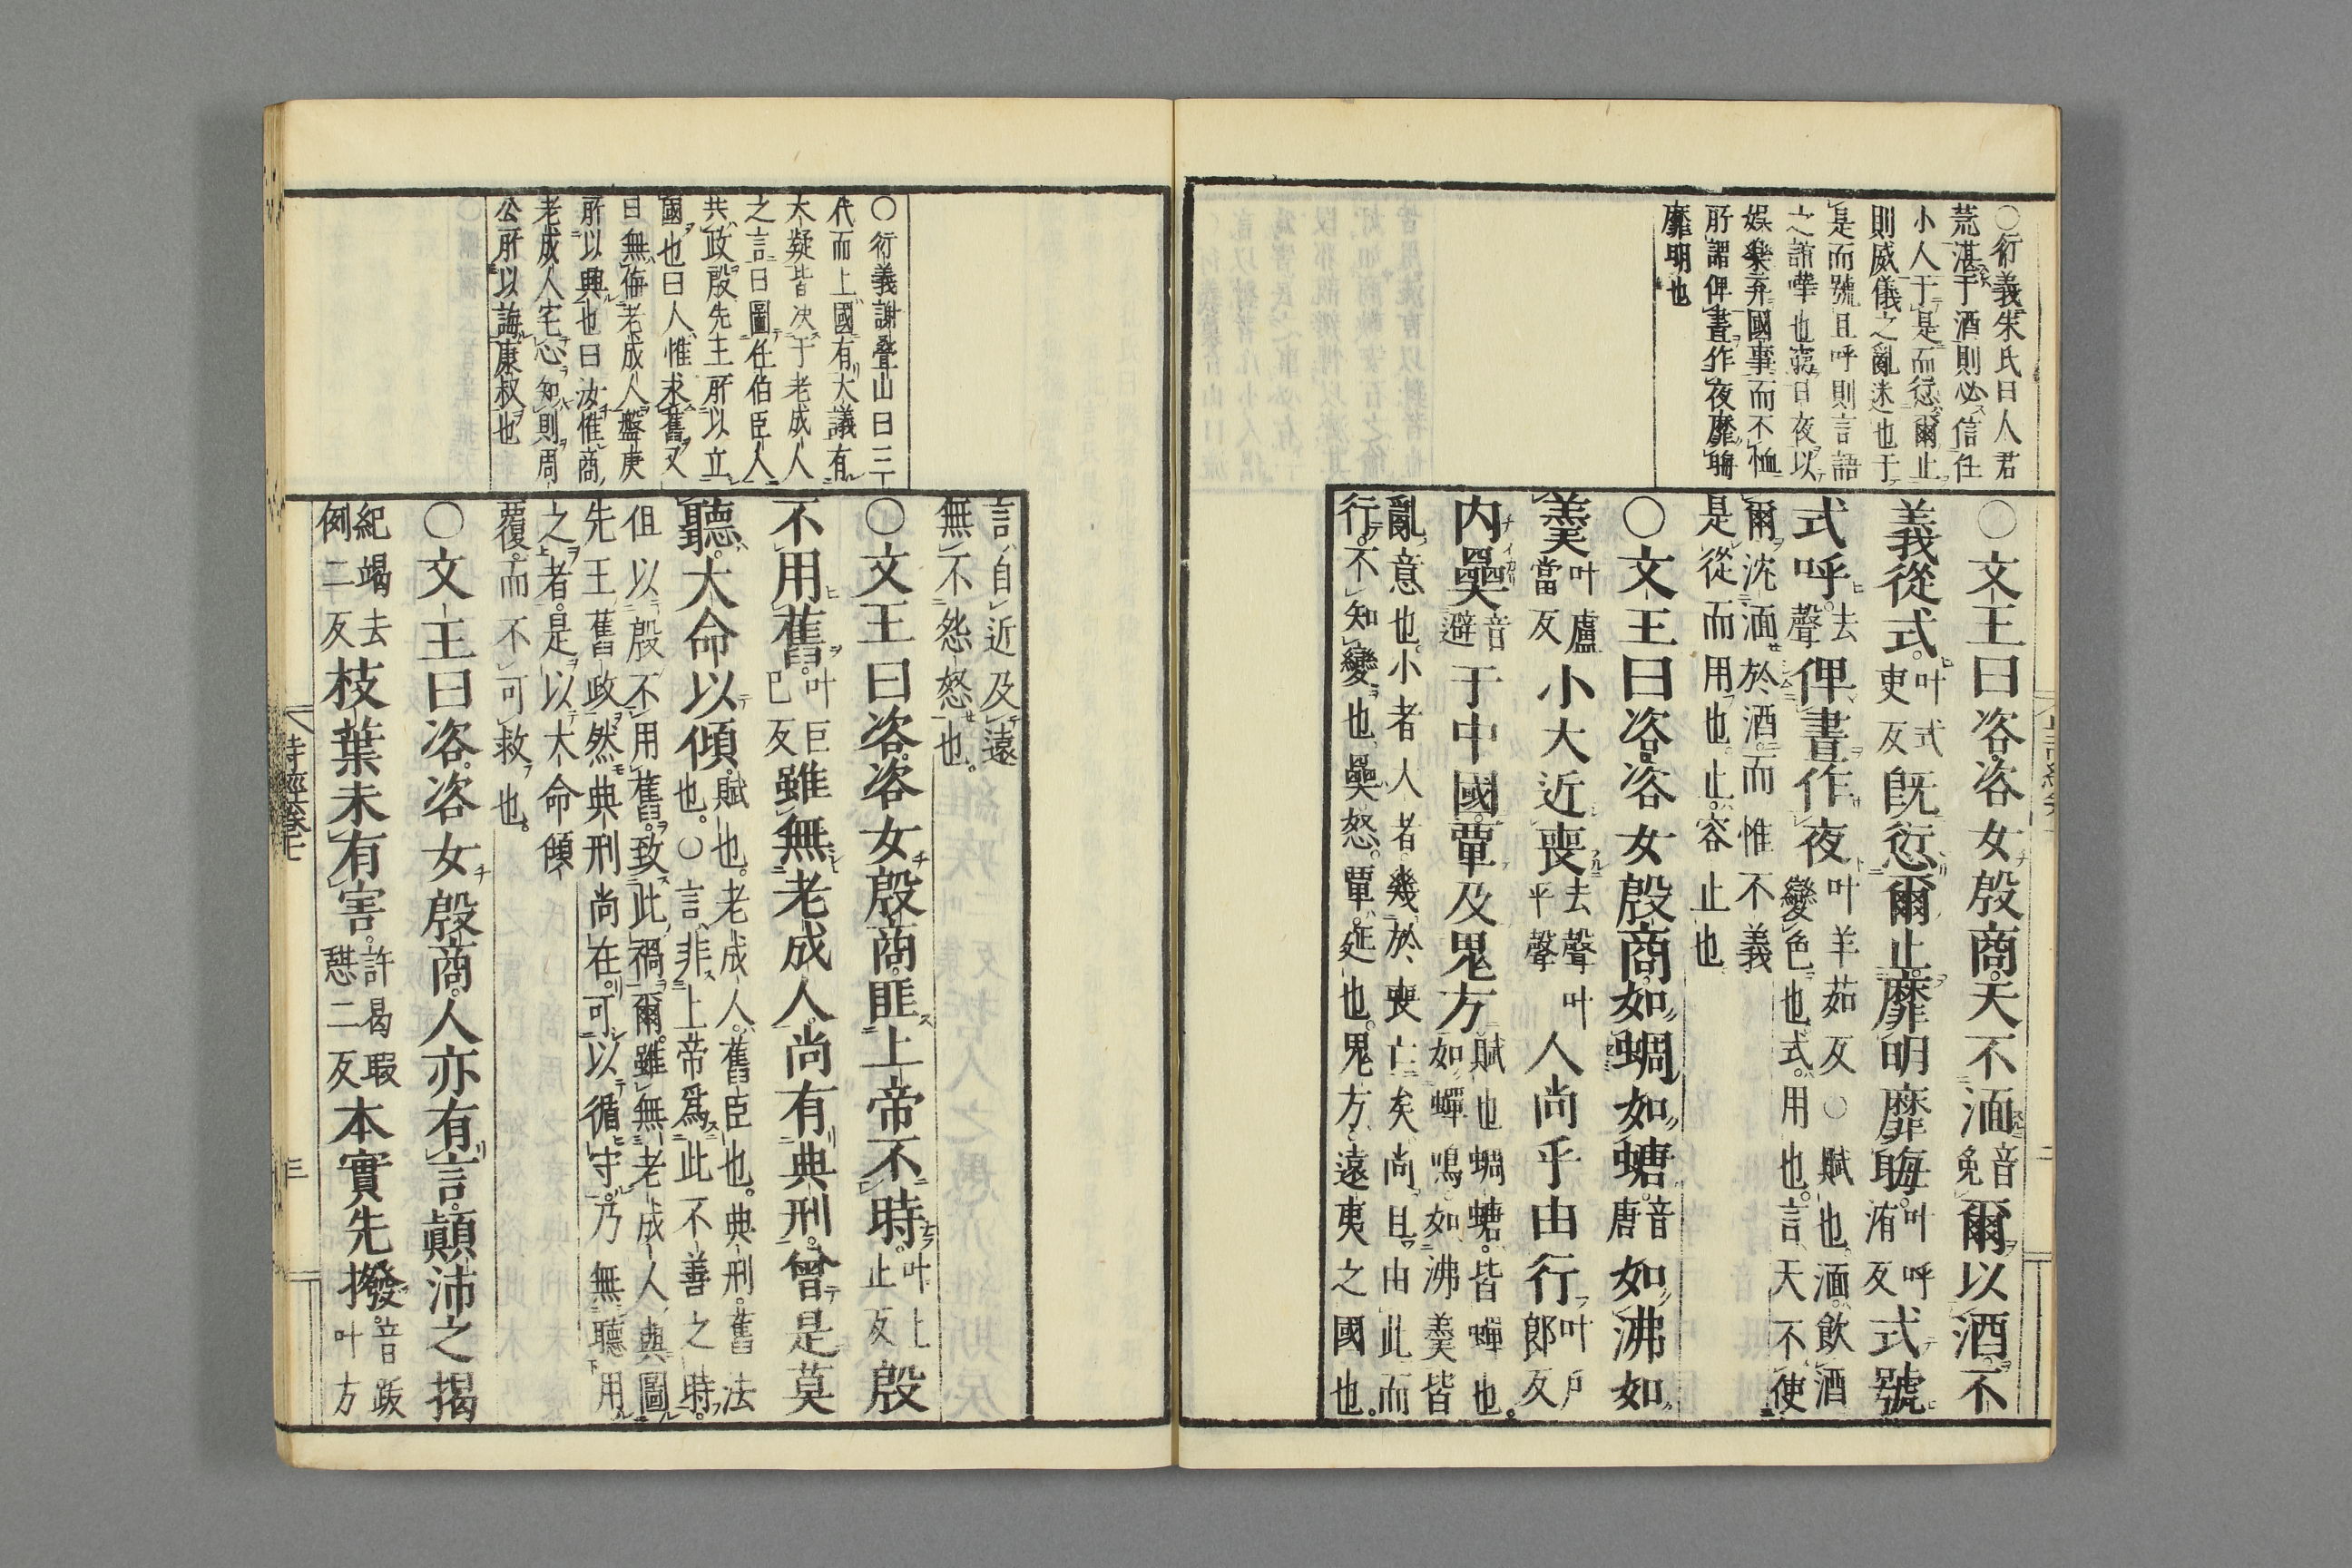 〇衍義朱氏曰人君
荒湛于酒則必信任
小人于是而愆爾止
則威儀之亂迷也于
是而號且呼則言語
之譁也夜以
娛樂弃國事而不恤
所謂俾晝作夜靡晦
靡明也
〇文王曰咨咨女殷商天不湎音免爾以酒不
義從式叶式吏反既愆爾止靡明靡晦叶呼洧反式號
式呼去聲俾晝作夜叶羊茹反〇賦也湎飲酒變色也式用也言天不使
爾沈湎於酒而惟不義
是從而用也止容止也
〇文王曰咨咨女殷商如蜩如螗音唐如沸如
羹叶盧當反小大近喪去聲叶平聲人尚乎由行叶戶郎反
内奰音避于中國覃及鬼方賦也蜩螗皆蟬也如蟬鳴如沸羹皆
亂意也小者人者幾於喪亡矣尚且由此而
行不知變也奰怒覃延也鬼方遠夷之國也
〇衍義謝疊山曰三
代而上國有大議有
大疑皆決于老成人
之言曰圖任伯臣人
共政殷先王所以立
國也曰人惟求舊又
曰無侮老成人盤庚
所以興也曰汝惟商
老成人宅心知則周
公所以誨康叔也
言自近及遠
無不怨怒也
〇文王曰咨咨女殷商匪上帝不時叶上止反殷
不用舊叶巨已反雖無老成人尚有典刑曾是莫
聽大命以傾賦也老成人舊臣也典刑舊法也〇言非上帝爲此不善之時
但以殷不用舊致此禍爾雖無老成人與圖
先王舊政然典刑尚在可以循守乃無聽用
之者是以大命傾
覆而不可救也
〇文王曰咨咨女殷商人亦有言顚沛之揭
紀竭去例二反枝葉未有害許曷瑕憇二反本實先撥音跋叶方
詩經卷七
三